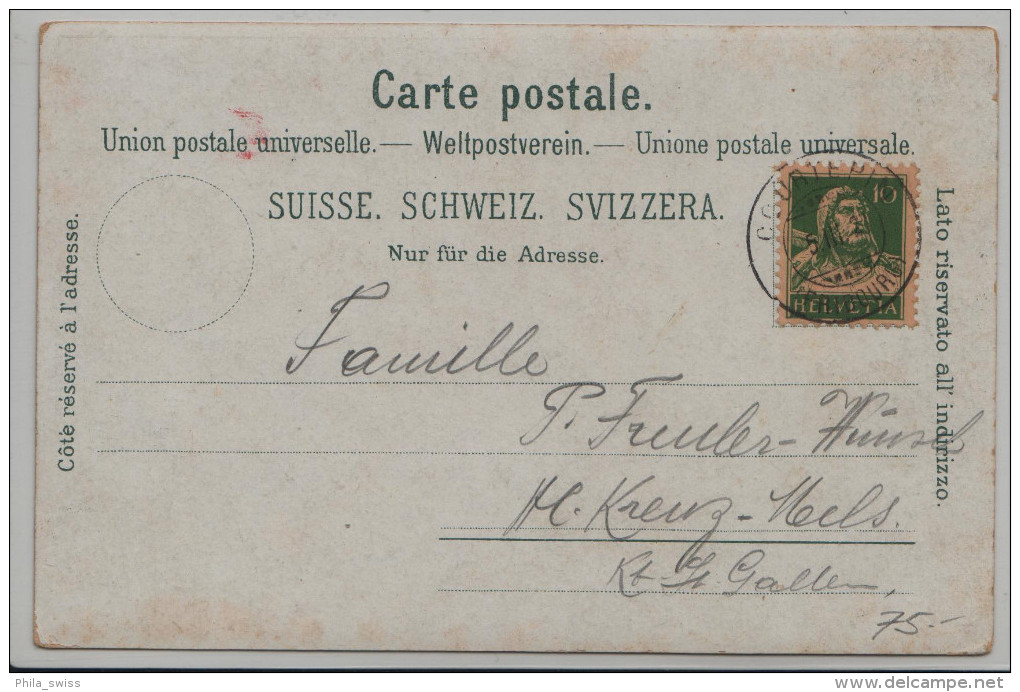 Carte postale.
Union postale universelle. — Weltpostverein. — Unione postale universale.
SUISSE. SCHWEIZ. SVIZZERA.
Nur für die Adresse.
Côté réservé à l'adresse.
Lato riservato all' indirizzo.
10
HELVETIA
Famille
P. Freuler-Wünsch
Kreuz-Mels.
Kt. St. Gallen,
75.-
Phila_swiss
www.delcampe.net